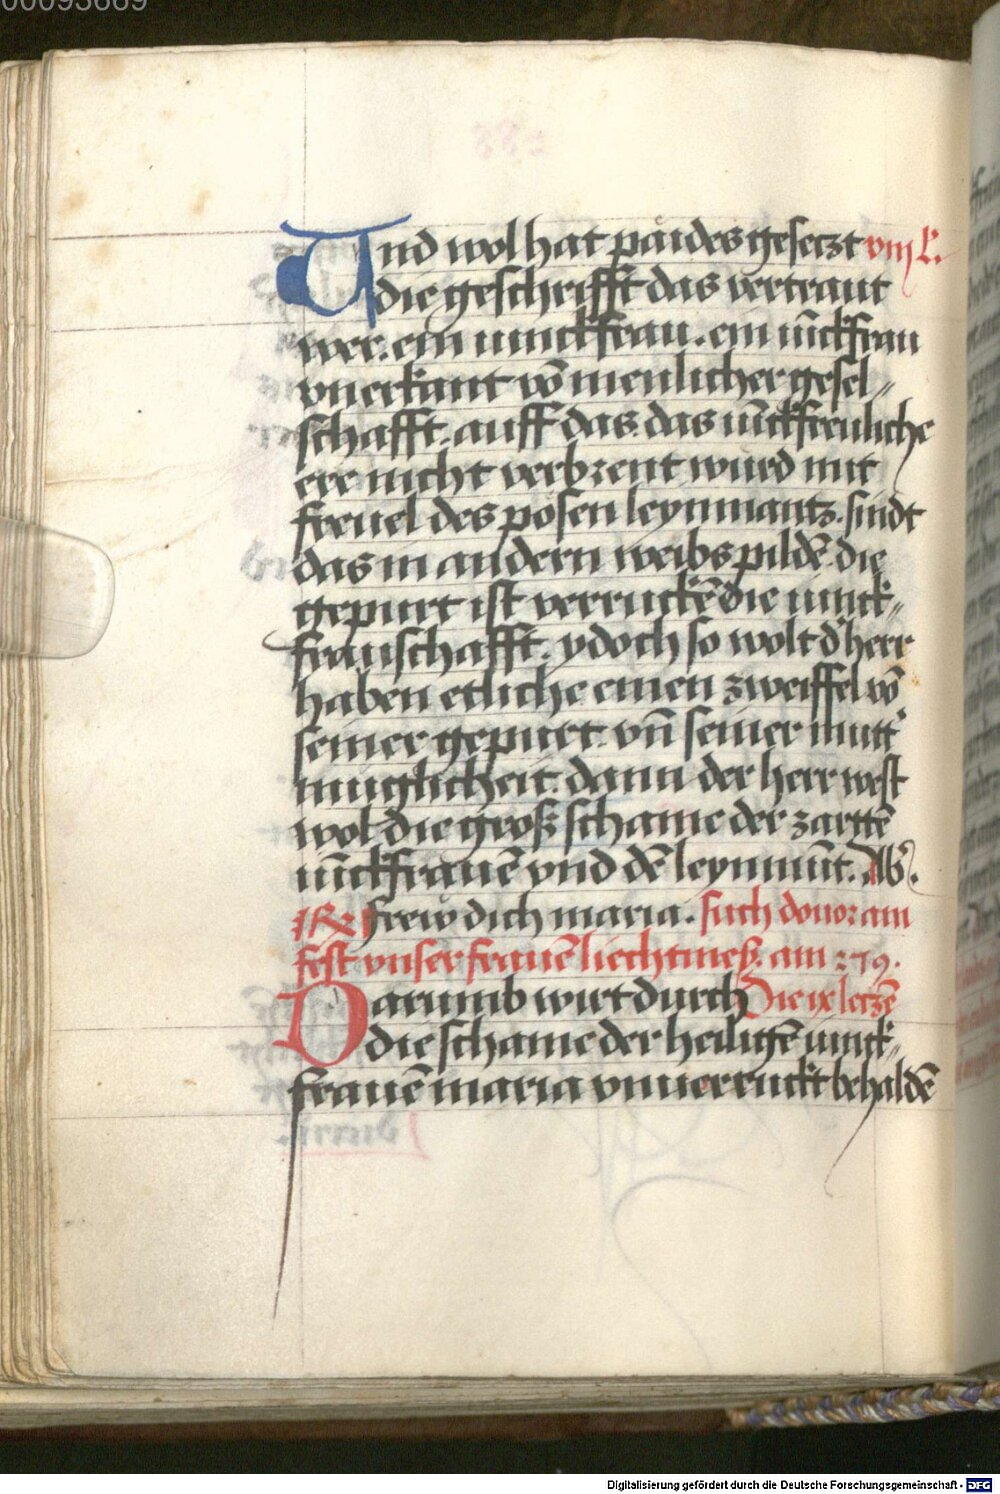 00093669
Und wol hat paides gesetzt viij l.
die geschrifft das vertraut
wer. ein iunckfrau. ein iūckfrau
vnerkant vō menlicher gesel„
schafft. auff das. das iūckfreuliche
ere nicht verbrent wurd mit
freuel des posen leynmantz. sindt
das in andern weibs pildē. die
gepurt ist verruckē die iunck„
frauschafft. ydoch so wolt d' herr
haben etliche einen zweiffel vō
seiner gepurt. vn̄ seiner mutt'
muglicheit. dann der herr west
wol die groß schame der zartē
iūckfrauē vnd dē leynmūt. Ab'.
R frew dich maria. such douor am
fest vnser frauē liechtmeß. am 279.
Darumb wirt durch Die ix leczē
die schame der heiligē iunck„
frauē maria vnuerruckt behaldē
Digitalisierung gefördert durch die Deutsche Forschungsgemeinschaft - DFG